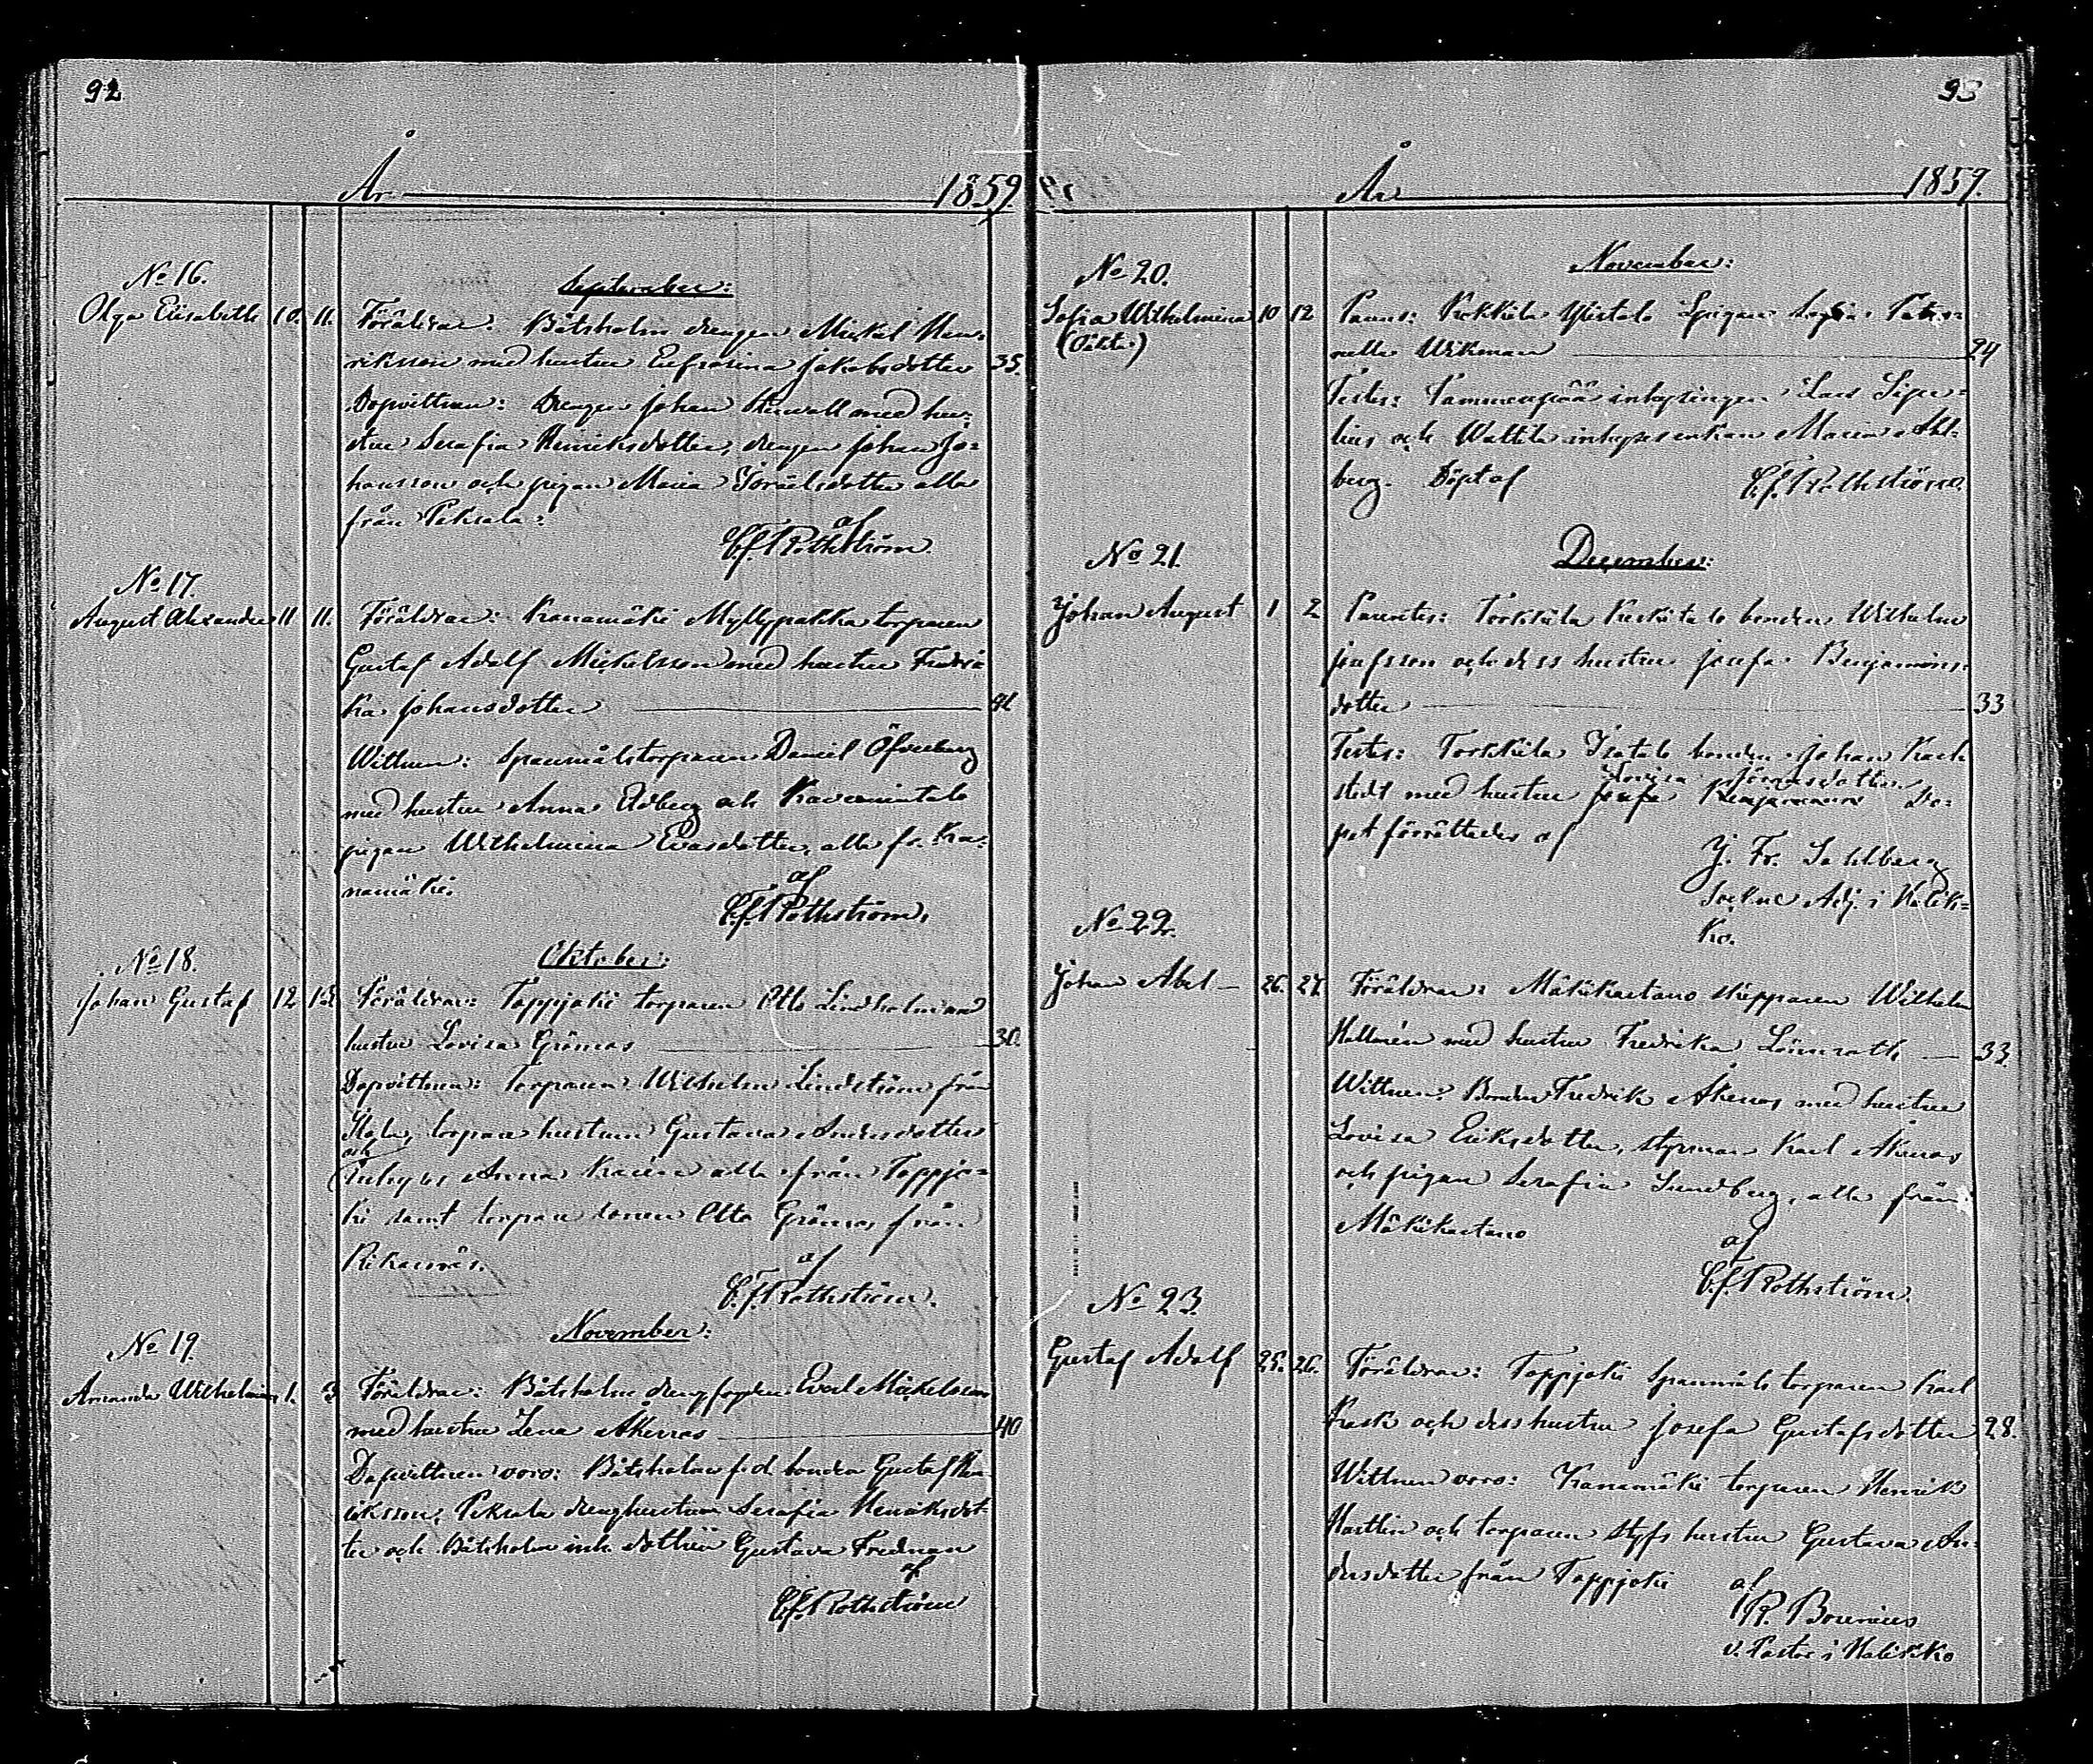 92
År 1859
September:
No 16.
Olga Elisabeth 10. 11. Föräldrar: Båtsholm drengen Mickel Hen-
riksson med hustru Eufrosina Jakobsdotter 35.
Dopvittnen: Drengen Johan med hu-
stru Serafia Henriksdotter, drengen Johan Jo-
hansson och pigan Maria Israelsdotter alla
från Peksala:
af
C.f. Rothström.
No 17.
August Alexander 11 11. Föräldrar: Kanamäki Myllypakka torparen
Gustaf Adolf Mickelsson med hustru Fredri
ka Johansdotter
Wittnen: Spanmålstorparen Daniel Öfverberg
med hustru Anna Edberg och
pigan Wilhelmina Evasdotter, alla fr. Ka-
namäki.
af
C.f. Rothström.
Oktober:
No 18.
Johan Gustaf 12 Föräldrar: Tappjoki torparen Otto Lindholm med
hustru Lovisa Grönros 30.
Dopvittnen: Torparen Wilhelm Lindström från
torpare hustrun Gustava Andersdotter
och
Inhyses Anna alla från Tappjo-
ki samt torpare sonen Otto Grönros från
Rikanäs.
af
C.f. Rothström.
November:
No 19.
Amanda Wilhelmina 1. 3 Föräldrar: Båtsholm drengfogden Evert Mickelsson
med hustru Lena Åkerros 40
Dopvittnen voro: Båtsholm f.d. bonden Gustaf
iksson, Peksala drenghustrun Serafia Henriksdot-
ter och Båtsholm inh. dottren Gustava Fredman
af
C.f. Rothström
93
År 1859.
November:
No 20.
Sofia Wilhelmina 10 12 Parens: Kokkila Ylistalo Spigan Sofia Petro-
(Oäkta) nella Wikman 24
Testes: Tammenpää inhysingen Lars Sige-
lius och Wättilä inhysesenkan Maria Ahl-
berg. Döpt af C.f. Rothström.
December:
No 21.
Johan August 1 2 Parentes: Torkkila Keskitalo bonden Wilhelm
Josefsson och dess hustru Josefa Benjamins-
dotter 33
Testes: Torkkila Isotalo bonden Johan Karl
Lovisa Göransdotter
stedt med hustru Josefa Benjamins Do-
pet förrättades af
J. Fr. Sahlberg
Sockne Adj. i Halik-
ko.
No 22.
Johan Abel 26. 27. Föräldrar: Mäkikartano skepparen Wilhelm
Hallorén med hustru Fredrika Lönnroth 33.
Wittnen: Bonden Fredrik Åkerros med hustru
Lovisa Eriksdotter, styrman Karl Åkerros
och pigan Serafia Sundberg, alla från
Mäkikartano
af
C.f. Rothström.
No 23.
Gustaf Adolf 25. 26. Föräldrar: Tappjoki Spanmåls torparen Karl
Rask och dess hustru Josefa Gustafsdotter 28.
Wittnen voro: Kanamäki torparen Henrik
Hartlin och torparen Styfs hustru Gustava An-
dersdotter från Tappjoki
af
R. Brunius
v. Pastor i Halikko